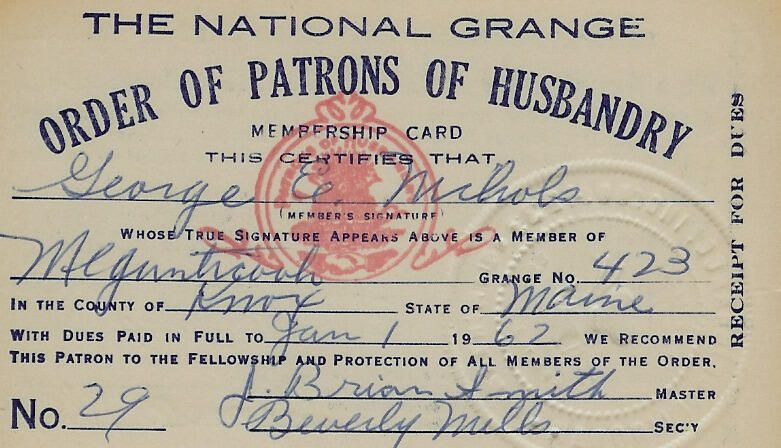 THE NATIONAL GRANGE
ORDER OF PATRONS OF HUSBANDRY
MEMBERSHIP CARD
THIS CERTIFIES THAT
George E. Nichols
(MEMBER'S SIGNATURE)
WHOSE TRUE SIGNATURE APPEARS ABOVE IS A MEMBER OF
Megunticook GRANGE NO. 423
IN THE COUNTY OF Knox STATE OF Maine
WITH DUES PAID IN FULL TO Jan 1 1962 WE RECOMMEND
THIS PATRON TO THE FELLOWSHIP AND PROTECTION OF ALL MEMBERS OF THE ORDER.
J. Brian Smith MASTER
No. 29 Beverly Mills SEC'Y
RECEIPT FOR DUES